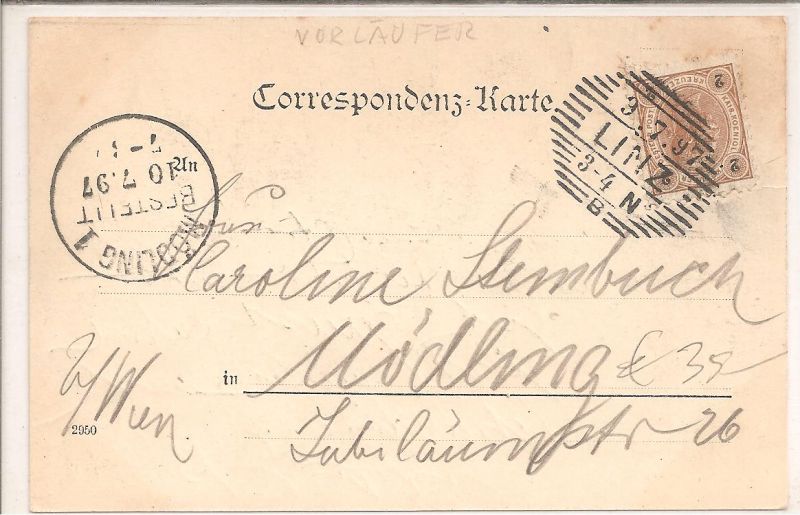 VORLÄUFER
Correspondenz-Karte.
2 KREUZER
2
9.7.97
LINZ
3-4 N
B
MÖDLING 1
BESTELLT
10.7.97
An
Caroline Steinbuch
in Mödling
b/Wien
Jubiläumstr 26
2950